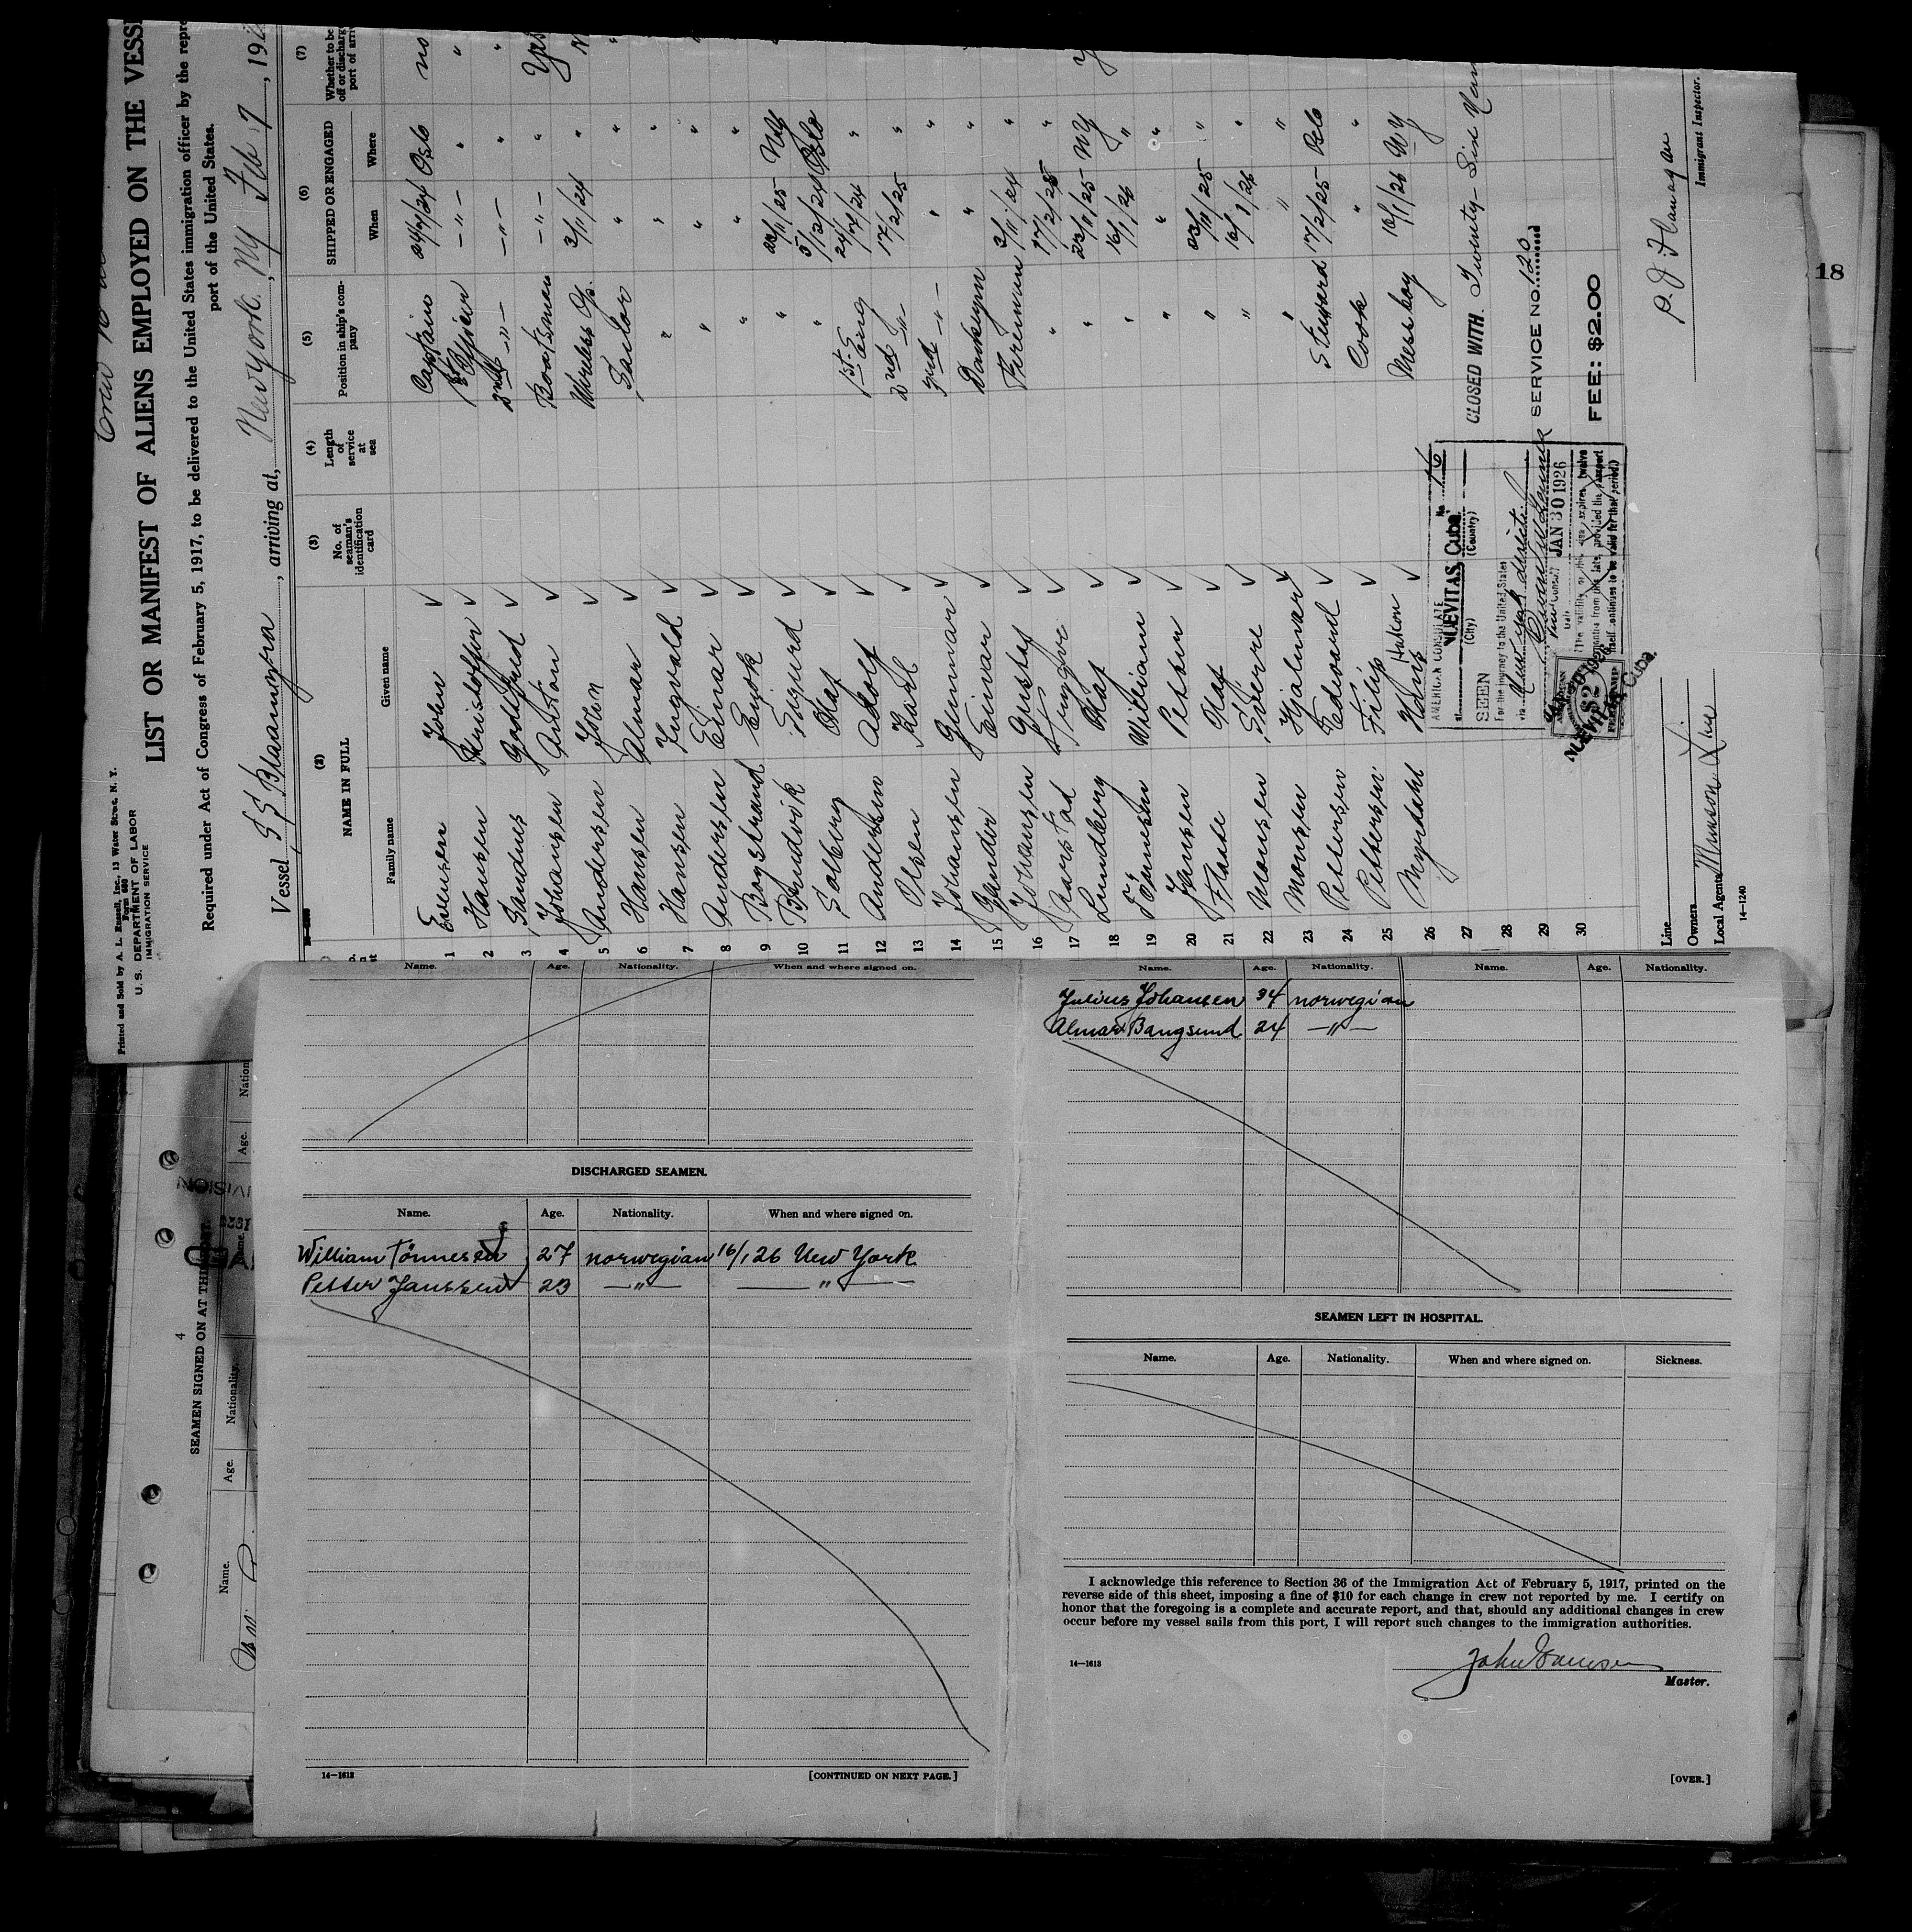 Printed and Sold by A. L. Russell, Inc., 13 Water Street, N. Y.
Form 680
U. S. DEPARTMENT OF LABOR
IMMIGRATION SERVICE
LIST OR MANIFEST OF ALIENS EMPLOYED ON THE VESS
Required under Act of Congress of February 5, 1917, to be delivered to the United States immigration officer by the repr
port of the United States.
Vessel SS Blaamyra, arriving at, New York. NY Feb 7, 192
(2) (3) (4) (5) (6) (7)
NAME IN FULL
Family name Given name
No. of seaman's identification card
Length of service at sea
Position in ship's company
SHIPPED OR ENGAGED
When Where
Whether to be
off or discharg
port of arri
1 Evensen John Captain 24/9/24 Oslo no
2 Hansen Kristoffer 1st Officer —"— " "
3 Sandnes Godtfred 2nd —"— —"— " "
4 Johansen Anton Boatsman —"— " Yes
5 Andersen John Wireless Op. 3/11/24 " N
6 Hansen Almar Sailor " " "
7 Hansen Ingvald " " " "
8 Andersen Einar " " " "
9 Roystrand Enok " " " "
10 Brudvik Sigurd " 23/11/25 NY
11 Solberg Olaf " 5/12/24 Oslo
12 Andersen Adolf 1st Eng 24/12/24 "
13 Olsen Karl 2nd —"— 17/2/25 "
14 Johansen Gunnar 3rd —"— " "
15 Gander Einar Donkeyman " "
16 Johansen Gustaf Fireman 3/11/24 "
17 " 17/2/25 "
18 Lundberg Olaf " 23/11/25 NY
19 Tönnesen William " 16/1/26 "
20 Janssen Petter " " "
21 Olaf " 23/11/25 "
22 Monsen Sverre " 16/1/26 "
23 Monsen Hjalmar " " "
24 Pettersen Edvard Steward 17/2/25 Oslo
25 Pettersen Filip Cook " "
26 Myrdahl Håkon Messboy 16/1/26 NY
27
28
29
30
CLOSED WITH Twenty-Six Nam
SERVICE NO. 120
FEE: $2.00
AMERICAN CONSULATE
NUEVITAS Cuba No 16
(City) (Country)
SEEN
For the journey to the United States
via New York
JAN 30 1926
Line
Owners
Local Agents Munson Line
14-1240
P. J. Flanagan
Immigrant Inspector.
18
4
SEAMEN SIGNED ON AT THI
Name. Age. Nationality.
Name. Age. Nation
Name. Age. Nationality. When and where signed on.
DISCHARGED SEAMEN.
Name. Age. Nationality. When and where signed on.
William Tönnesen 27 norwegian 16/1 26 New York
Petter Janssen 23 —"— —"—
14—1613
[CONTINUED ON NEXT PAGE.]
Name. Age. Nationality. Name. Age. Nationality.
Julius Johansen 34 norwegian
Almar Bangsund 24 —"—
SEAMEN LEFT IN HOSPITAL.
Name. Age. Nationality. When and where signed on. Sickness.
I acknowledge this reference to Section 36 of the Immigration Act of February 5, 1917, printed on the
reverse side of this sheet, imposing a fine of $10 for each change in crew not reported by me. I certify on
honor that the foregoing is a complete and accurate report, and that, should any additional changes in crew
occur before my vessel sails from this port, I will report such changes to the immigration authorities.
14—1613
John Evensen
Master.
[OVER.]